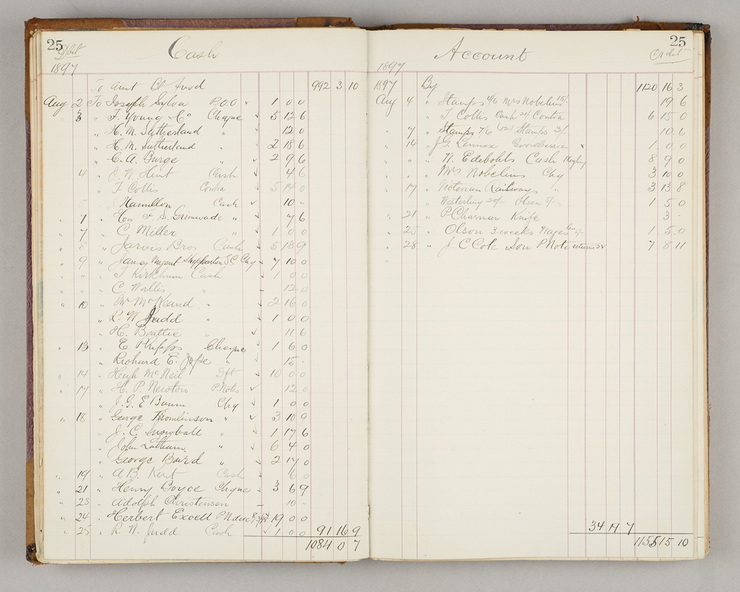 25 Cash
1897
To amt fwd 992 3 10
Aug 2 To Joseph Sylva P.O.O 1 0 0
3 " F. Young & Co Cheque 5 12 6
" H. M. Sutherland 12 0
" H. M. Sutherland 2 18 6
" C. A. 2 9 6
4 " J. W. Cash 4 6
" F Collis Contra 5
" Hamilton Cash 10 -
7 " Hon F. S. Grimwade " 7 6
7 " C. Miller " 1 0 0
8 " Jarvis Bros Cash
9 " James 7 10 0
" T Kirkham Cash 1 0 0
" C. Wallis " 12 0
10 " W McKeand " 2 16 0
" R. W. Judd " 1 0 0
" H. Beattie " 11 6
13 " E Phipps Cheque 1 6 0
" Richard E. " 15 -
14 " Hugh McNeil Dft 10 0 0
17 " H. P. Newton P Note 12 0
" J. G. E Chq 1 0 0
18 " George Thomlinson " 3 10 9
" J. C. Snowball " 1 17 6
" John Latham " 6 4 0
" George Baird " 2 17 0
19 " A. B. Kent Cash
21 " Henry Boyce Cheque 3 6 9
23 " Adolph Christenson 10 -
24 " Herbert Excell P Note 19 0 0
25 " R. W. Judd Cash 1 0 0 91 16 9
1084 0 7
Account Credit 25
1897
1897 By 1120 16 3
Aug 4 " Stamps Mrs Nobelius 19 6
" T Collis Cash Contra 6 15 0
7 " Stamps 7/6 Stamps 3/- 10 6
14 " J. G. Lennox 1 0 0
" N. Edeboklls Cash 8 9 0
" Mrs Nobelius Chq 3 10 0
17 " Victorian Railways " 3 13 8
" 1 5 0
21 " P Charman Knife 3 -
25 " Olson 3 weeks 1 5 0
28 " J C Cole Son P Note returned 7 8 11
34 19 7
1155 15 10